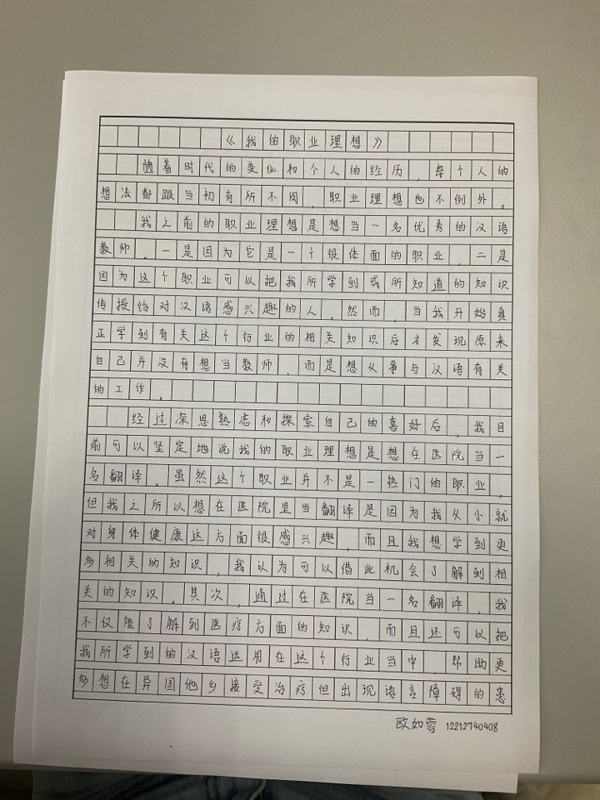 《我的职业理想》
随着时代的变化和个人的经历，每个人的
想法都跟当初有所不同，职业理想也不例外。
我之前的职业理想是想当一名优秀的汉语
教师，一是因为它是一个很体面的职业，二是
因为这个职业可以把我所学到或所知道的知识
传授给对汉语感兴趣的人。然而，当我开始真
正学到有关这个行业的相关知识后才发现原来
自己并没有想当教师，而是想从事与汉语有关
的工作。
经过深思熟虑和探索自己的喜好后，我目
前可以坚定地说我的职业理想是想在医院当一
名翻译。虽然这个职业并不是一热门的职业，
但我之所以想在医院里当翻译是因为我从小就
对身体健康这方面很感兴趣，而且我想学到更
多相关的知识，我认为可以借此机会了解到相
关的知识。其次，通过在医院当一名翻译，我
不仅能了解到医疗方面的知识，而且还可以把
我所学到的汉语运用在这个行业当中，帮助更
多想在异国他乡接受治疗但出现语言障碍的患
欧如蓉 12212740408